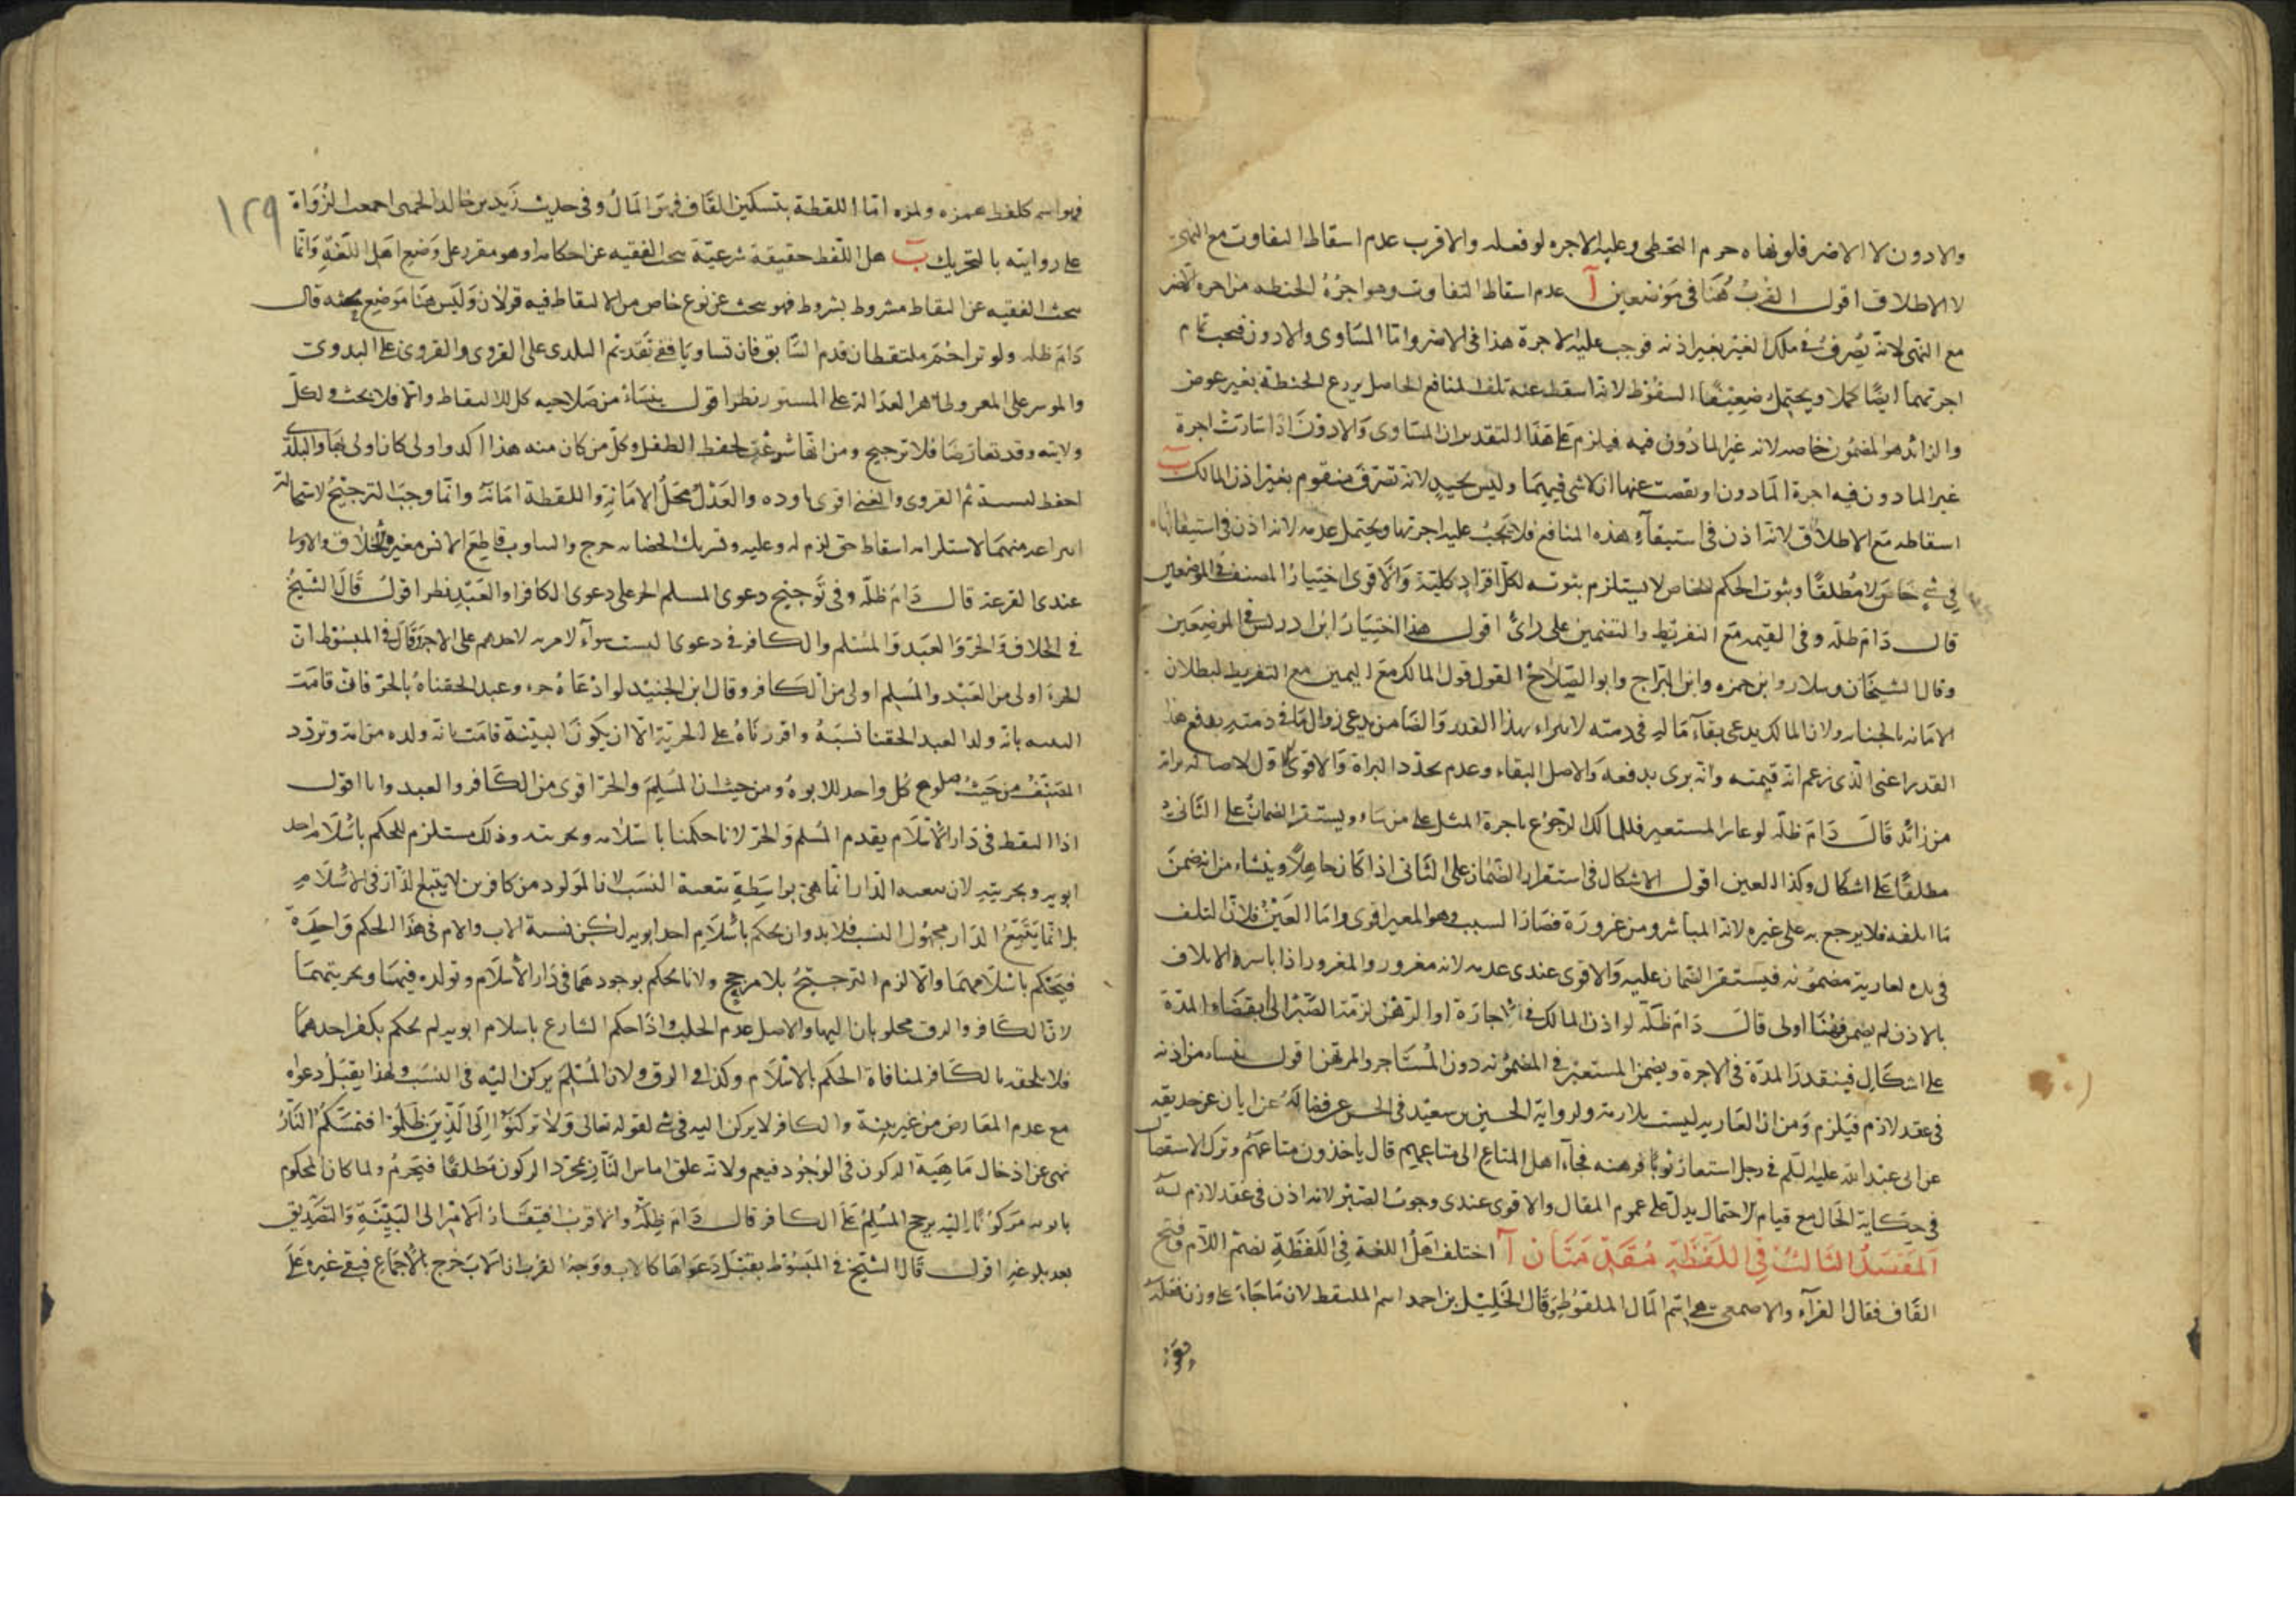 والادون لا الاضر فلو نهاه حرم التخطي وعليه الاجره لو فعله والاقرب عدم اسقاط التفاوت مع النهي
لا الاطلاق اقول القرب هنا في موضعين آ عدم اسقاط التفاوت وهو اجرة الحنطه من اجره الاضر
مع النهي لانه تصرف في ملك الغير بغير اذنه فوجب عليه الاجرة هذا في الاضر واما المساوى والادون فيجب تمام
اجرتهما ايضا كملا ويحتمل ضعيفا السقوط لانه اسقط عنه تلف المنافع الحاصل بزرع الحنطة بغير عوض
والزائد هو المضمون خاصه لانه غير الماذون فيه فيلزم على هذا التقدير ان المساوى والادون اذا ساوت اجرة
غير الماذون فيه اجرة الماذون او نقصت عنها ان لا شى فيهما وليس بجيد لانه تصرف متقوم بغير اذن المالك ب
اسقاطه مع الاطلاق لانه اذن في استيفاء هذه المنافع فلا يجب عليه اجرتها ويحتمل عدمه لانه اذن في استيفائها
في شئ خاص لا مطلقا وثبوت الحكم للخاص لا يستلزم ثبوته لكل افراد كليته والاقوى اختيار المصنف في الموضعين
قال دام ظله وفي القيمه مع التفريط والتضمين على رائ اقول هذا اختيار ابن ادريس في الموضعين
وقال الشيخان وسلار وابن حمزه وابن البراج وابو الصلاح القول قول المالك مع اليمين مع التفريط لبطلان
الامانه بالخيانه ولان المالك يدعى بقاء ماله في ذمته لا يبراء بهذا القدر والضامن يدعى زوال ما في ذمته بدفع هذا
القدر اعنى الذى زعم انه قيمته وانه برى بدفعه والاصل البقاء وعدم تجدد البراة والاقوى الاول لاصالة براته
من زائد قال دام ظله لو عار المستعير فللمالك الرجوع باجرة المثل على من شاء ويستقر الضمان على الثاني
مطلقا على اشكال وكذا العين اقول الاشكال في استقرار الضمان على الثاني اذا كان جاهلا وينشاء من انه ضمن
ما اتلفه فلا يرجع به على غيره لانه المباشر ومن غروره فصار السبب وهو المعير اقوى واما العين فلان التلف
في يده لعارية مضمونه فيستقر الضمان عليه والاقوى عندى عدمه لانه مغرور والمغرور اذا باشره الاتلاف
بالاذن لم يضمن فهنا اولى قال دام ظله لو اذن المالك في الاجارة او الرهن لزمته الصبر الى انقضاء المدة
على اشكال فيتقدر المدة في الاجرة ويضمن المستعير في المضمونه دون المستاجر والمرتهن اقول ينشاء من اذنه
في عقد لازم فيلزم ومن ان العاريه ليست بلازمة ولرواية الحسين بن سعيد في الحسن عن فضالة عن ابان عن حذيفه
عن ابى عبد الله عليه السلم في رجل استعار ثوبا فرهنه فجاء اهل المتاع الى متاعهم قال ياخذون متاعهم وترك الاستفصال
في حكاية الحال مع قيام الاحتمال يدل على عموم المقال والاقوى عندى وجوب الصبر لانه اذن في عقد لازم له
المقصد الثالث في اللقطة مقدمتان آ اختلف اهل اللغة في اللقطة بضم اللام وفتح
القاف فقال الفراء والاصمعى هى اسم المال الملقوط وقال الخليل بن احمد اسم الملتقط لان ما جاء على وزن فعلة
فهو
١٢٩
فهو اسم كلفظ همزه ولمزه اما اللقطة بتسكين القاف فهو المال وفي حديث زيد بن خالد الجهنى اجمعت الرواة
على روايته بالتحريك ب هل اللقط حقيقة شرعية بحث الفقيه عن احكامه او هو مقرر على وضع اهل اللغة وانما
بحث الفقيه عن التقاط مشروط بشروط فهو بحث عن نوع خاص من الالتقاط فيه قولان وليس هنا موضع بحثه قال
دام ظله ولو تزاحم ملتقطان قدم السابق فان تساويا ففي تقديم البلدى على القروى والقروى على البدوى
والموسر على المعسر وظاهر العدالة على المستور نظر اقول ينشاء من صلاحيه كل للالتقاط والا فلا بحث ولكل
ولايته وقد تعارضا فلا ترجيح ومن انها شرعت لحفظ الطفل وكل من كان منه هذا اكد واولى كان اولى بها والبلدى
احفظ لنسبه ثم القروى والغنى اقوى ماوده والعدل محل الامانة واللقطة امانة وانما وجب الترجيح لاستحالة
انتزاعه منهما لاستلزامه اسقاط حق لزم له وعليه وتشريك الحضانه حرج والتناوب قاطع الانس مغير الاخلاق والاولى
عندى القرعة قال دام ظله وفي ترجيح دعوى المسلم الحر على دعوى الكافر او العبد نظر اقول قال الشيخ
في الخلاف والحر والعبد والمسلم والكافر في دعوى النسب سواء لا مزيه لاحدهم على الاخر وقال في المبسوط ان
الحر اولى من العبد والمسلم اولى من الكافر وقال ابن الجنيد لو ادعاه حر وعبد الحقناه بالحر فان قامت
البينه بانه ولد العبد الحقنا نسبه واقررناه على الحرية الا ان يكون البينة قامت بانه ولده من امة وتردد
المصنف من حيث صلوح كل واحد للابوة ومن حيث ان المسلم والحر اقوى من الكافر والعبد وانا اقول
اذا التقط في دار الاسلام يقدم المسلم والحر لانا حكمنا باسلامه وحريته وذلك مستلزم للحكم باسلام احد
ابويه وبحريته لان تبعية الدار انما هى بواسطة تبعية النسب لان المولود من كافرين لا يتبع الدار في الاسلام
بل انما يتبع الدار مجهول النسب فلا بد وان يحكم باسلام احد ابويه لكن نسبة الاب والام في هذا الحكم واحدة
فيحكم باسلامهما والا لزم الترجيح بلا مرجح ولانا نحكم بوجودهما في دار الاسلام وتولده فيها وبحريتهما
لان الكافر والرق مجلوبان اليها والاصل عدم الجلب واذا حكم الشارع باسلام ابويه لم يحكم بكفر احدهما
فلا يلحقه بالكافر لمنافاة الحكم بالاسلام وكذا في الرق ولان المسلم يركن اليه في النسب ولهذا يقبل دعواه
مع عدم المعارض من غير بينة والكافر لا يركن اليه في شئ لقوله تعالى ولا تركنوا الى الذين ظلموا فتمسكم النار
نهى عن ادخال ماهية الركون في الوجود فيعم ولانه علق امساس النار بمجرد الركون مطلقا فيحرم ولما كان المحكوم
بابوته مركونا اليه يرجح المسلم على الكافر قال دام ظله والاقرب افتقار الام الى البينة والتصديق
بعد بلوغه اقول قال الشيخ في المبسوط يقبل دعواها كالاب ووجه القرب ان الاب خرج بالاجماع فبقي غيره على